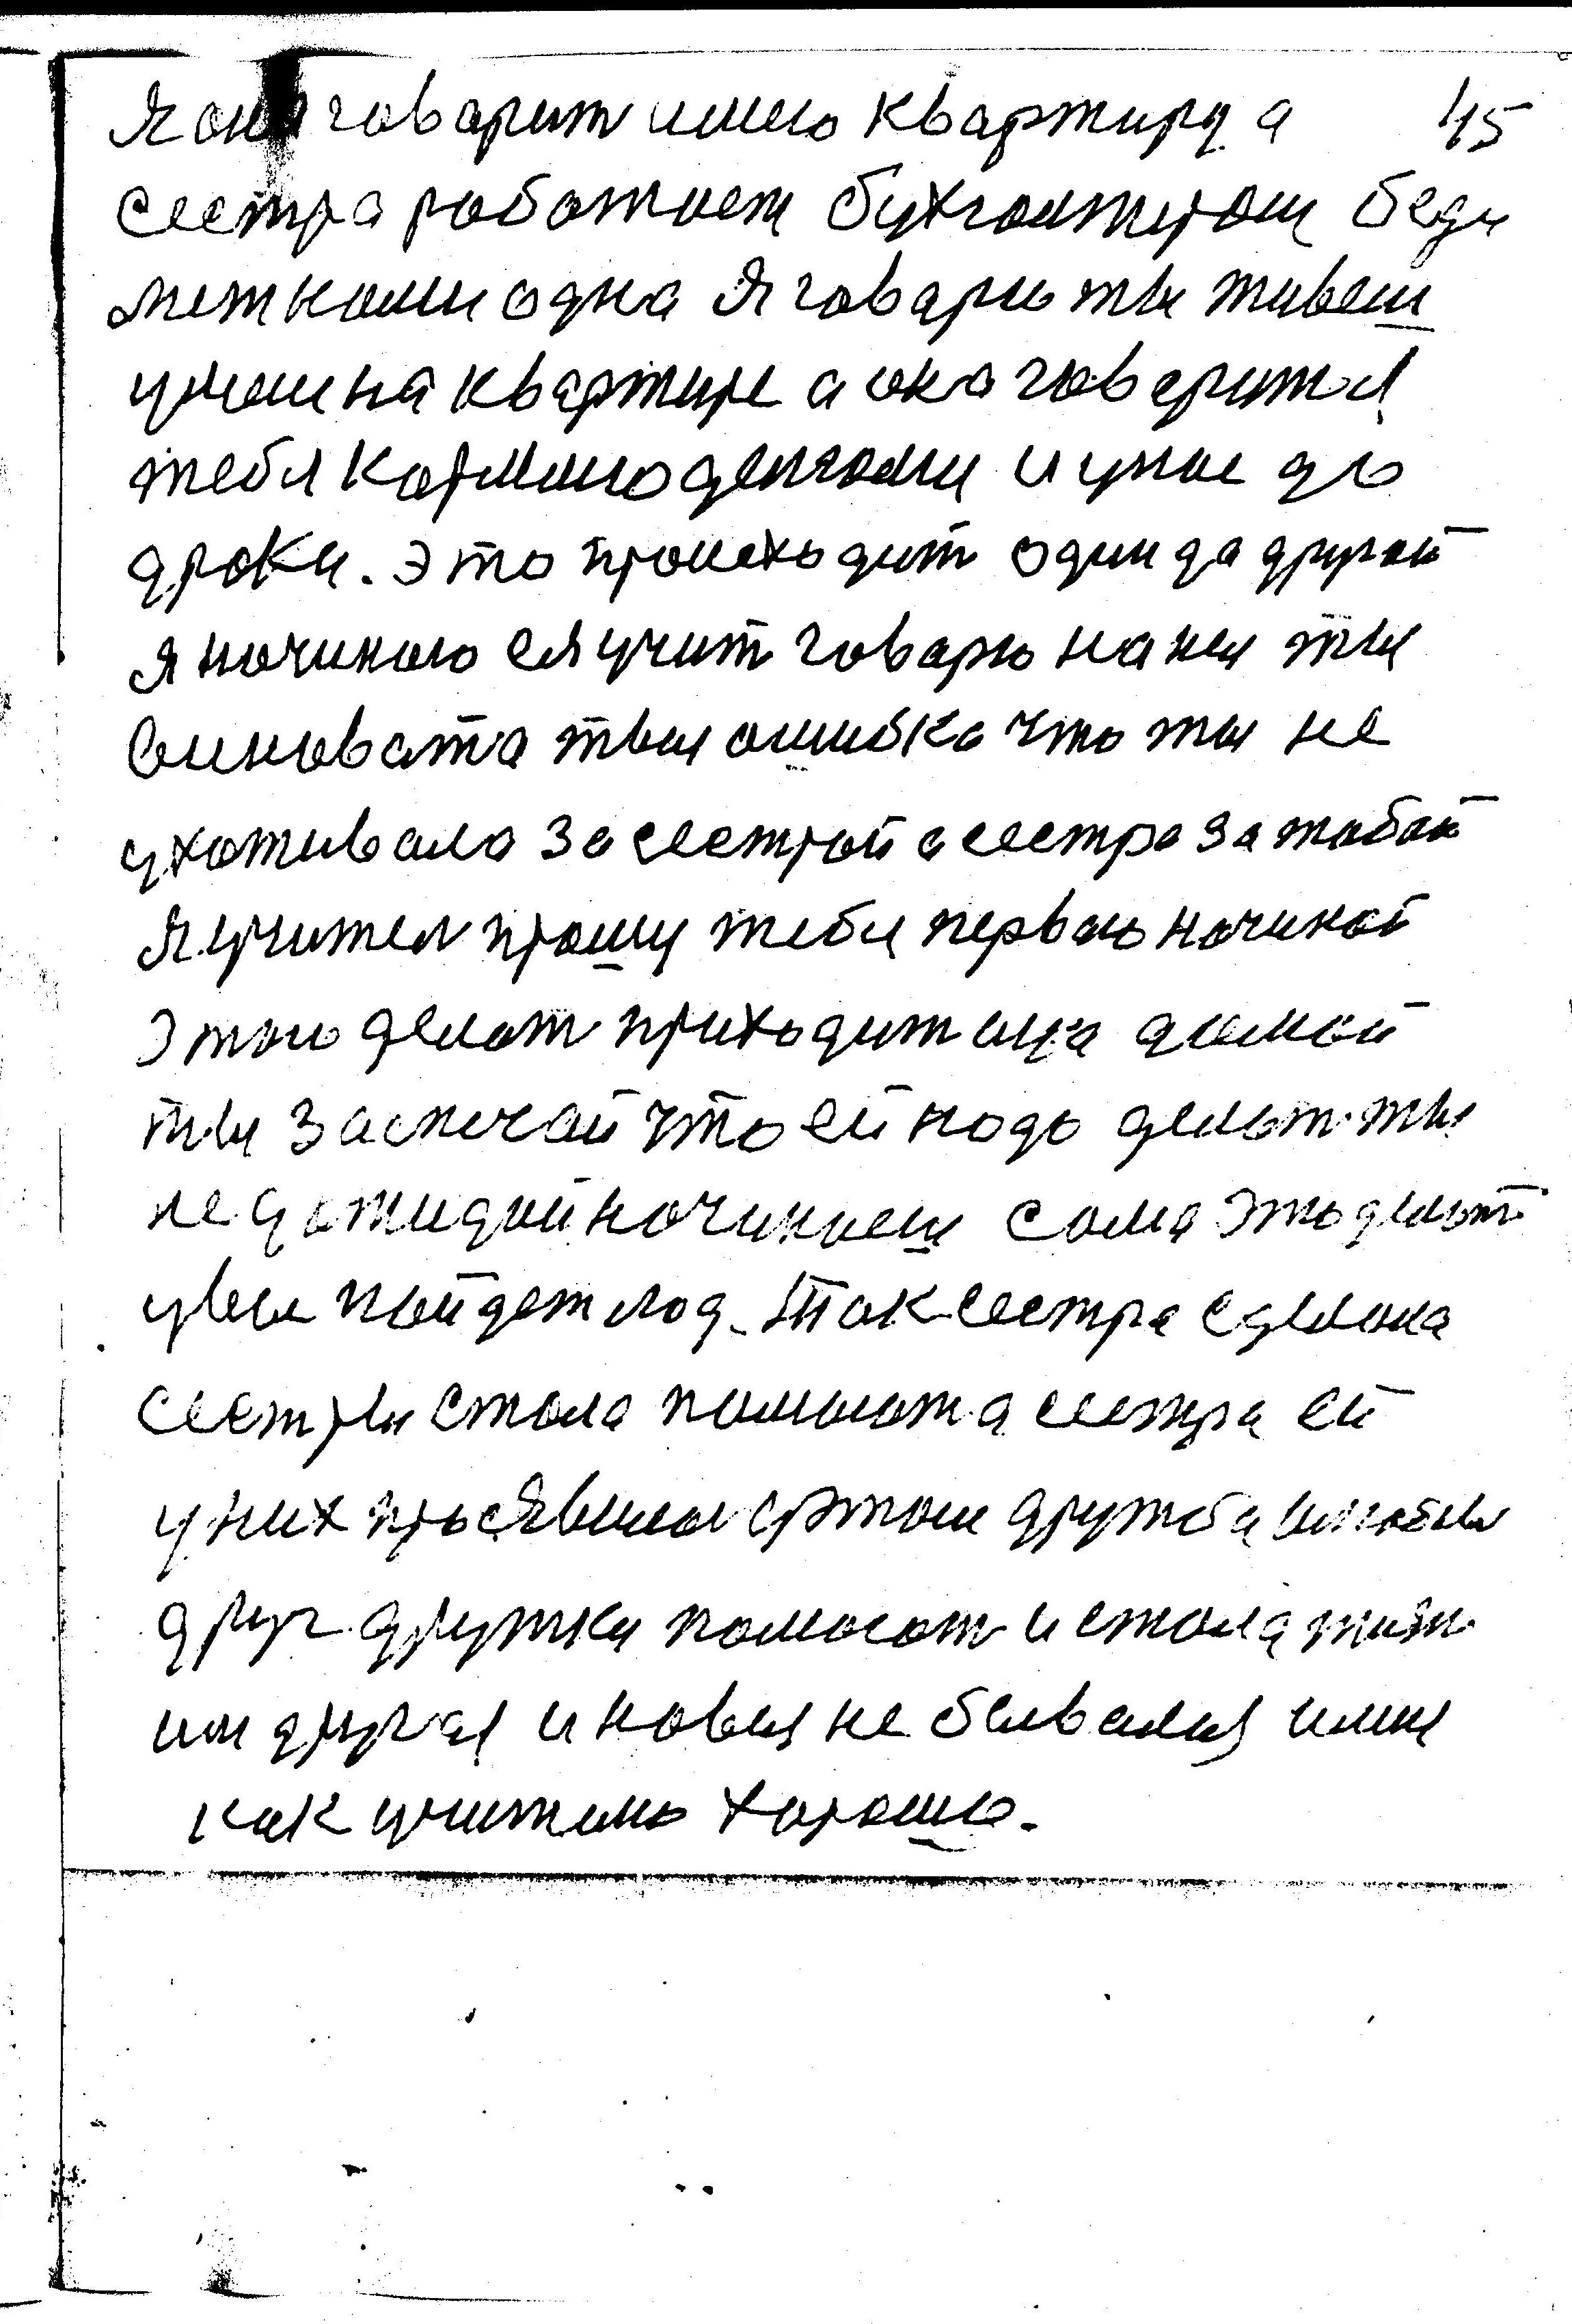 Я она говарит имею квартиру а 45
сестра работает бухгалтером беды
мет нами одна Я говарю ты живеш
умени на квартире а она говарит я
тебя кормлю деньгами и у нас до
драки. Это происходит один да другой
я начинаю ея учит говарю на ня ты
виновата твоя ошибка что ты не
ухаживала за сестрой а сестра за табой
Я учител прошу тебя первою начинай
этою делат приходит она дамой
ты замечай что ей надо делат ты
не дажидай начинаеш сама это делат
у вас пойдет лад. Так сестра сделана
сестры стала памогат а сестра ей
у них проявилас в этом дружба и любов
друг дружки помогат и стала жит
им другая и новая не бывалая или
как учителю хорошо.